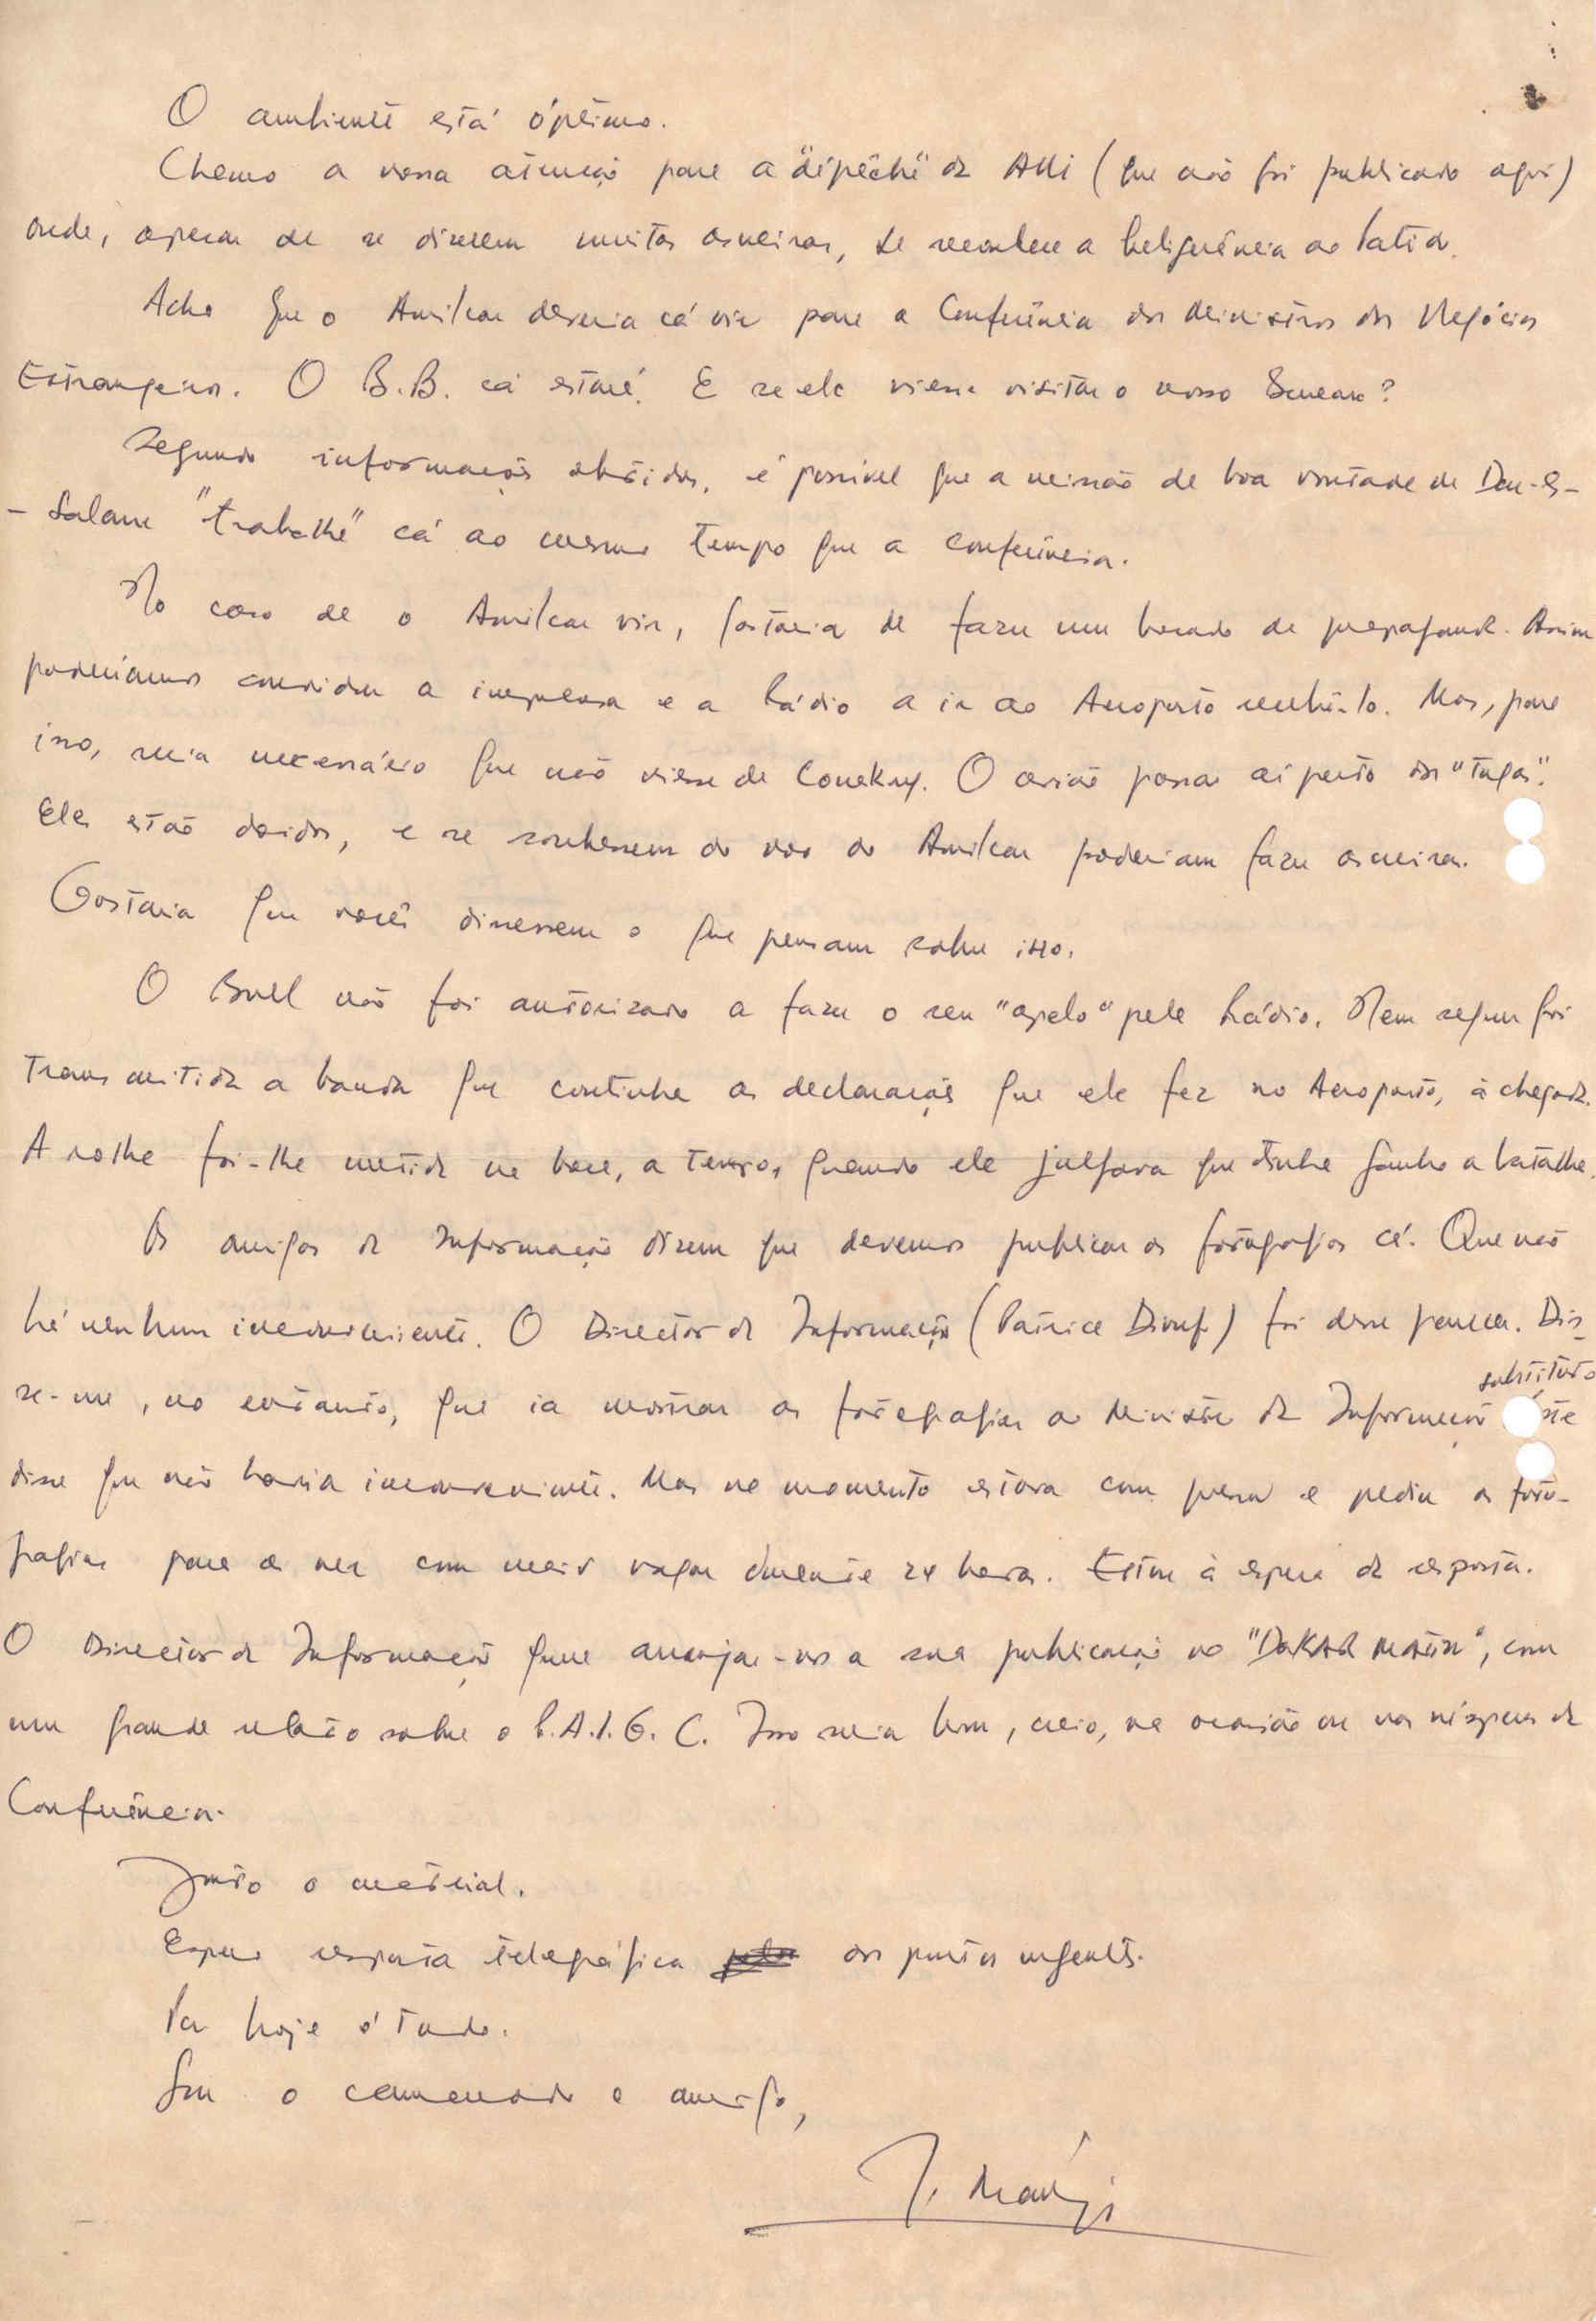 O ambiente está óptimo.
Chamo a vossa atenção para a "dépêche" da (que não foi publicado aqui)
onde, apesar de se dizerem muitas asneiras, se reconhece a beligerância ao Partido.
Acho que o Amilcar deveria cá vir para a Conferência dos Ministros dos Negócios
Estrangeiros. O B.B. cá estará. E se ele viesse visitar o nosso Bureau?
Segundo informações obtidas, é possível que a missão de boa vontade de Dar-Es-
-Salam "trabalhe" cá ao mesmo tempo que a conferência.
No caso de o Amilcar vir, gostaria de fazer um bocado de propaganda. Assim
poderíamos convidar a imprensa e a Rádio a ir ao Aeroporto recebê-lo. Mas, para
isso, seria necessário que não viesse de Conakry. O avião passa aí perto dos "tugas".
Eles estão doidos, e se soubessem do voo do Amilcar poderiam fazer asneiras.
Gostaria que vocês dissessem o que pensam sobre isso.
O Bull não foi autorizado a fazer o seu "apelo" pela Rádio. Nem sequer foi
transmitida a banda que continha as declarações que ele fez no Aeroporto, à chegada.
A rolha foi-lhe metida na boca, a tempo, quando ele julgava que tinha ganho a batalha.
Os amigos da Informação dizem que devemos publicar as fotografias cá. Que não
há nenhum inconveniente. O Director da Informação (Patrice Diouf) foi desse parecer. Dis-
se-me, no entanto, que ia mostrar as fotografias ao Ministro da Informação substituto
disse que não havia inconveniente. Mas no momento estava com pressa e pediu as foto-
grafias para as ver com mais vagar durante 24 horas. Estou à espera da resposta.
O Director da Informação quer arranjar-nos a sua publicação no "DAKAR MATIN", com
um grande relato sobre o P.A.I.G.C. Isso seria bom, creio, na ocasião ou nas vésperas da
Conferência.
Junto o material.
Espero resposta telegráfica dos pontos urgentes.
Por hoje é tudo.
Sou o camarada e amigo,